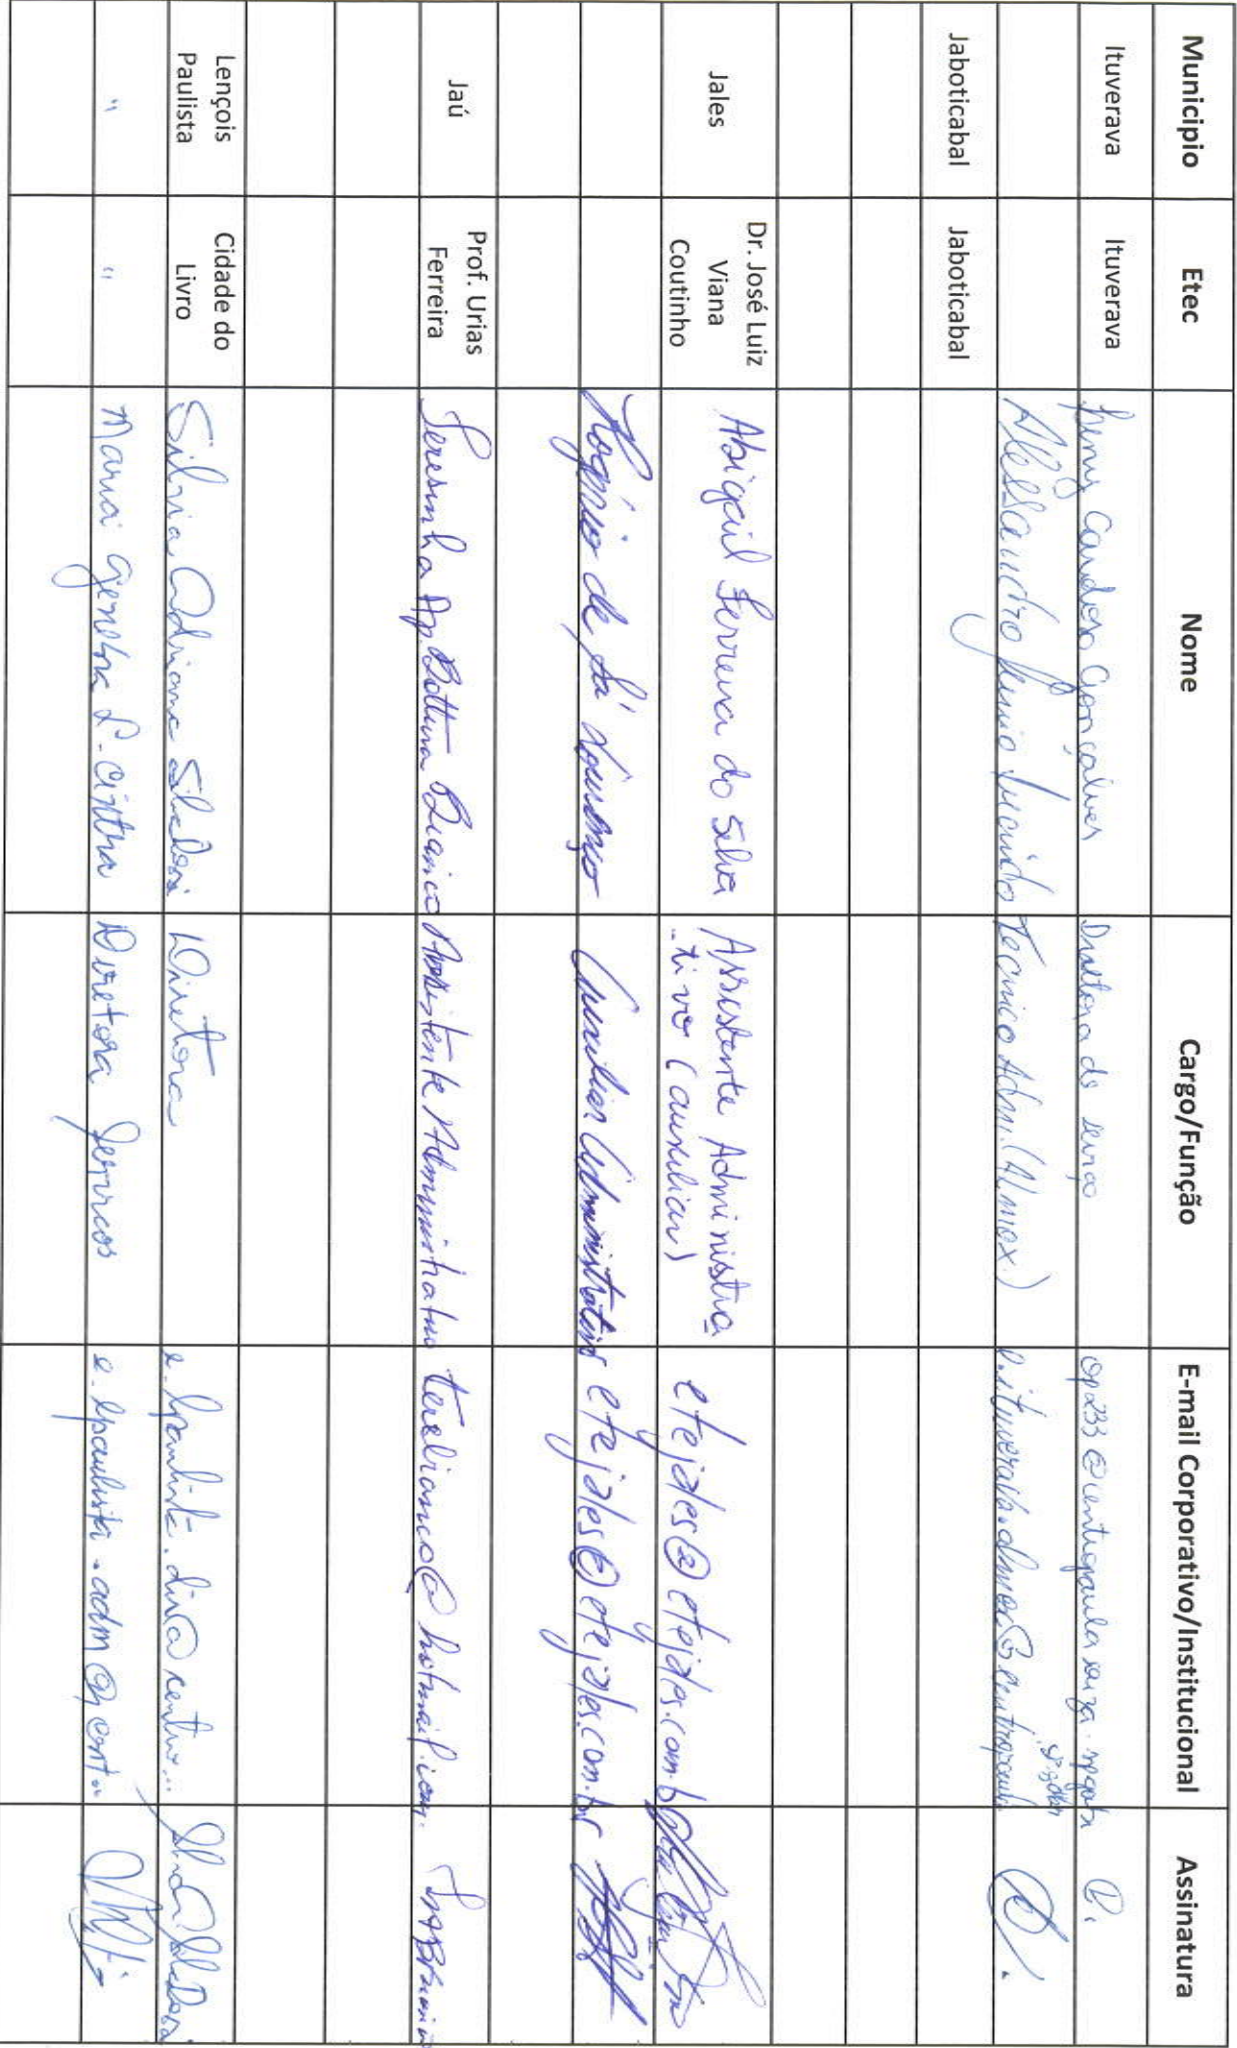 Municipio Etec Nome Cargo/Função E-mail Corporativo/Institucional Assinatura
Ituverava Ituverava Cardoso Gonçalves Diretora de serviço op233@centropaulasouza.sp.gov.br
Alessandro Técnico Adm. (Almox.)
.sp.gov.br
Jaboticabal Jaboticabal
Jales Dr. José Luiz Viana Coutinho Abigail Ferreira da Silva Assistente Administra
tivo (auxiliar) etejales@etejales.com.b
Rogério de Sá Lourenço Auxiliar Administrativo etejales@etejales.com.br
Jaú Prof. Urias Ferreira Teresinha Ap. Bottura Bianco Assistente Administrativo terebianco@hotmail.com.
Lençois Paulista Cidade do Livro Silvia Adriana Diretora e.lpaulista.dir@centro...
" " Maria Genebra L. Cintra Diretora Serviços e.lpaulista.adm@cent..